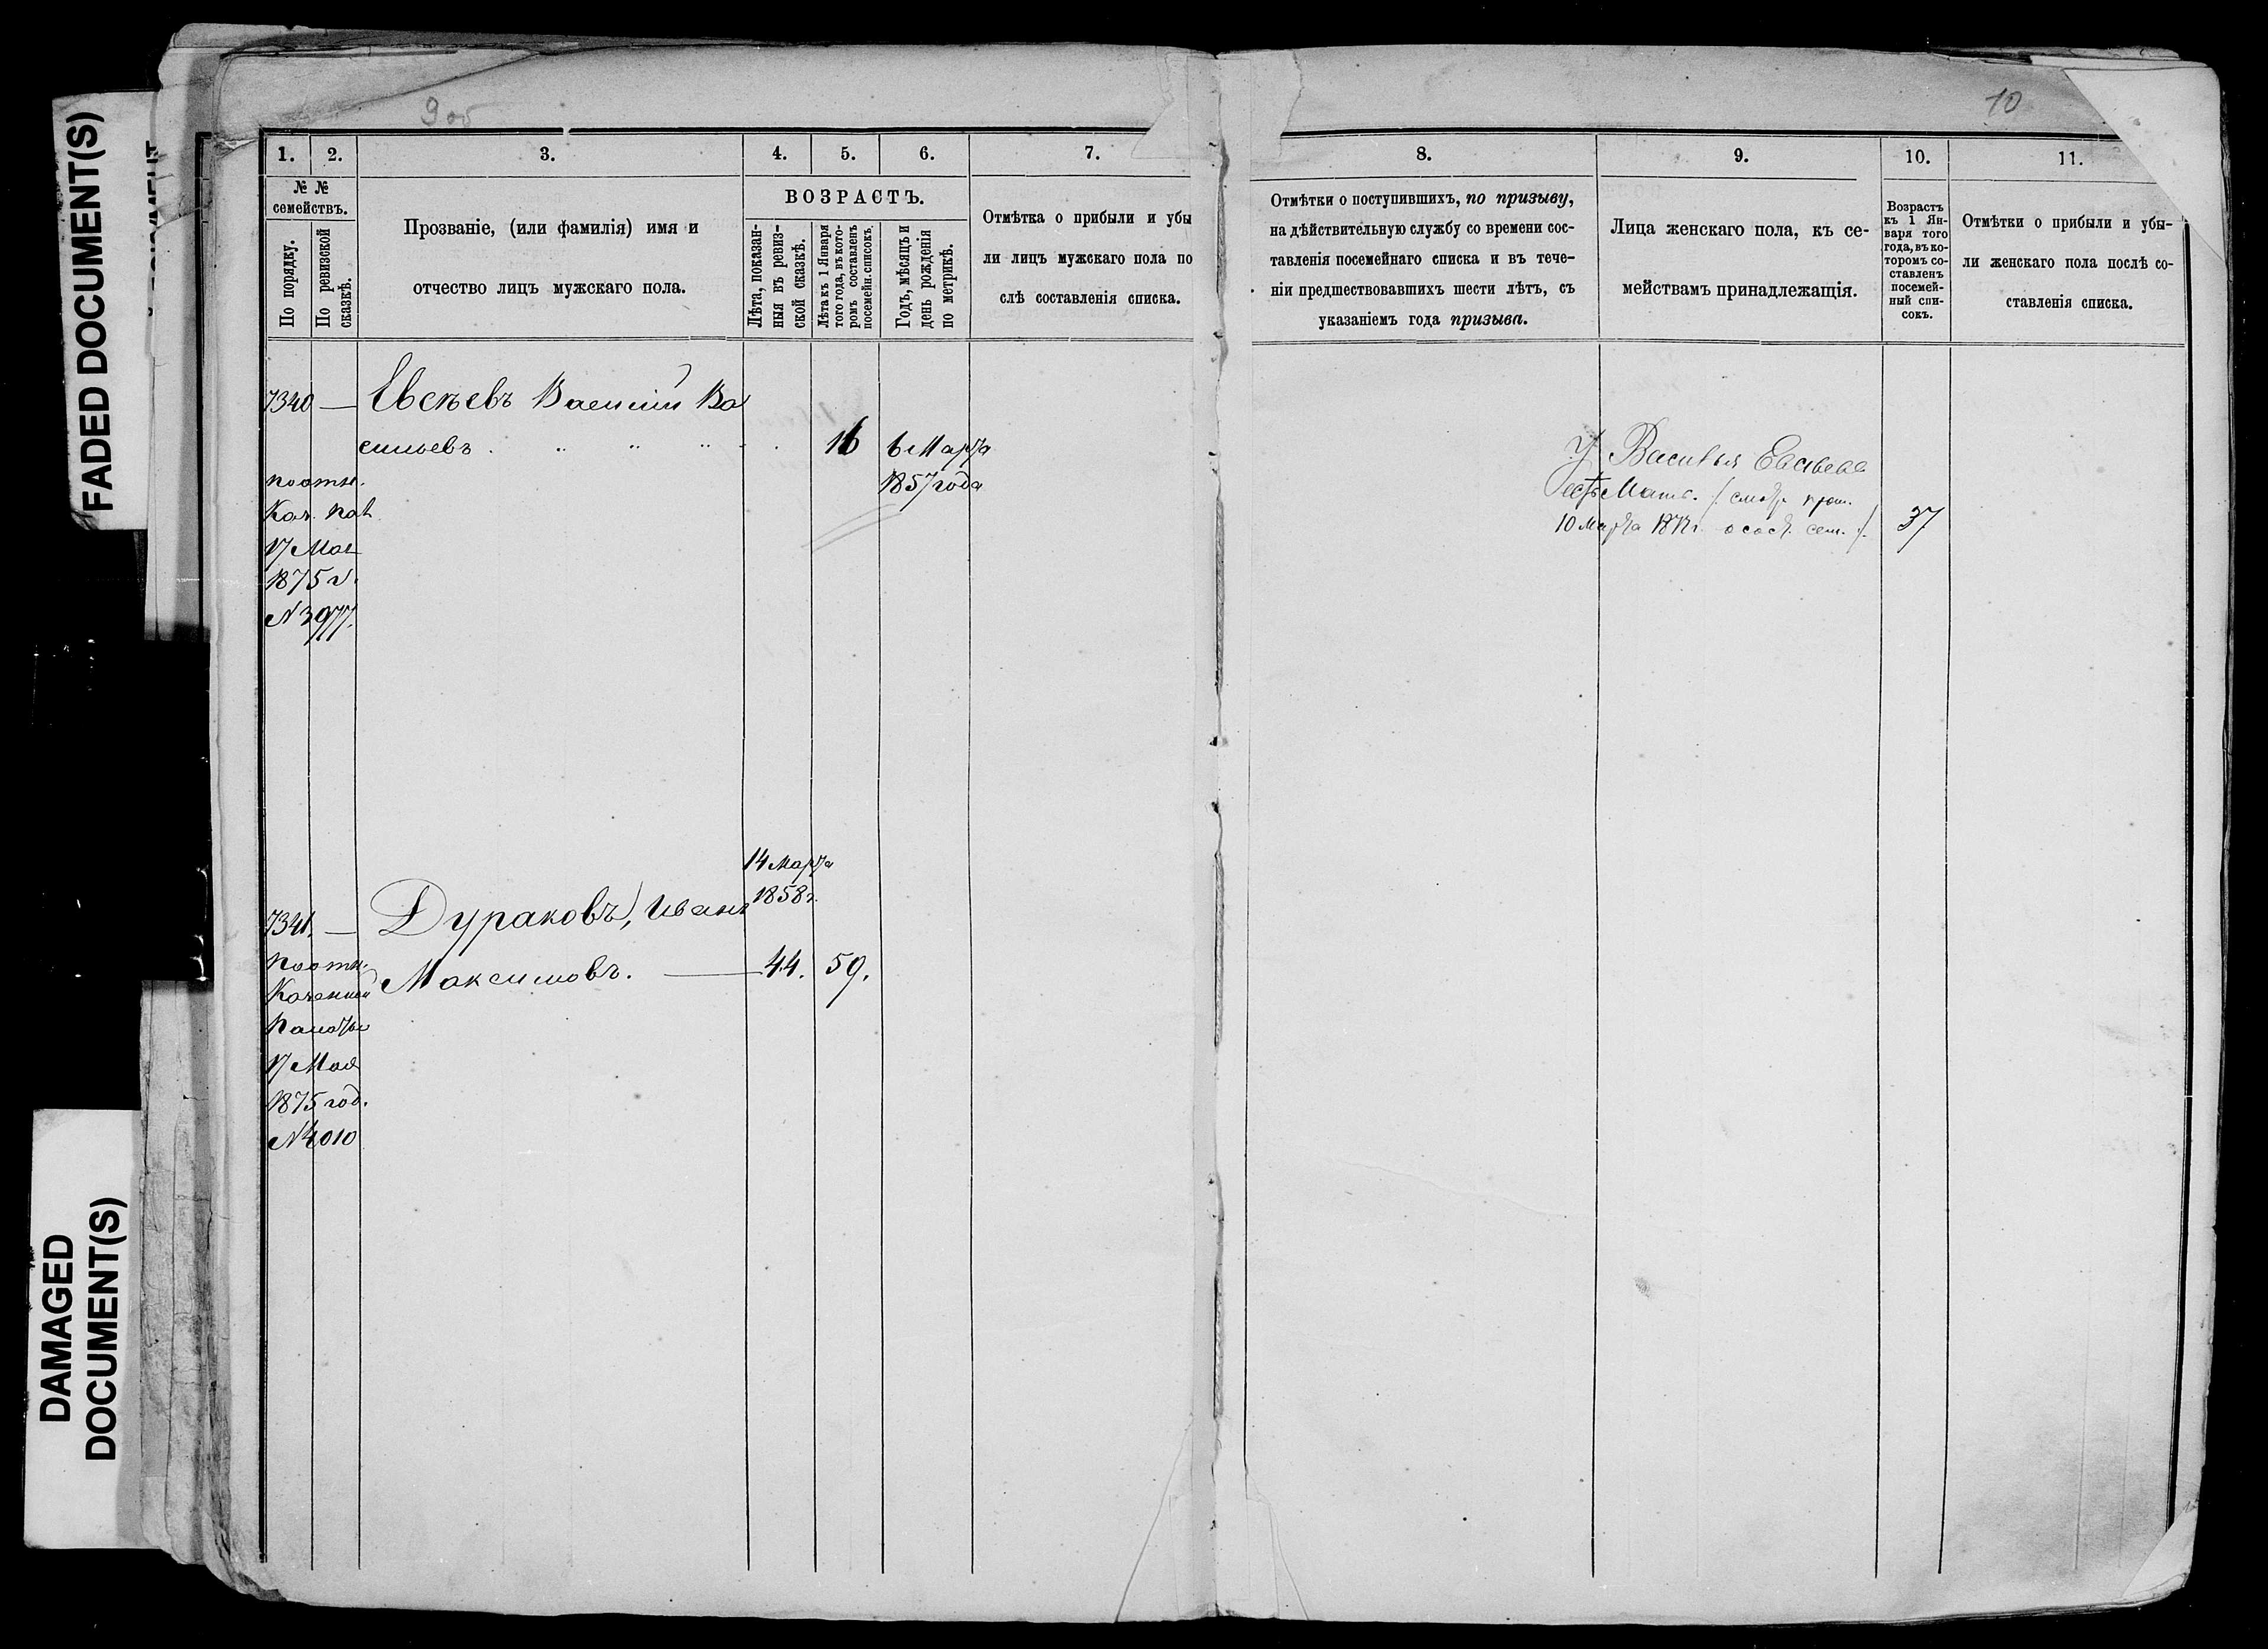 FADED DOCUMENT(S)
DAMAGED
DOCUMENT(S)
9 об
1. 2. 3. 4. 5. 6. 7.
№ №
семействъ.
По порядку.
По ревизской
сказкѣ.
Прозваніе, (или фамилія) имя и
отчество лицъ мужскаго пола.
ВОЗРАСТЪ.
Лѣта, показан-
ныя въ ревиз-
ской сказкѣ.
Лѣта къ 1 Января
того года, въ кото-
ромъ составленъ
посемейн. списокъ.
Годъ, мѣсяцъ и
день рожденія
по метрикѣ.
Отмѣтка о прибыли и убы
ли лицъ мужскаго пола по
слѣ составленія списка.
7340 — Евсѣевъ Василій Ва
сильевъ . " " " 16 6 Марта
1857 года
по отн.
Каз. Пал.
17 Мая
1875 г.
N 3977.
14 Марта
1858 г.
7341. — Дураковъ, Иванъ
Максимовъ. — 44. 59.
по отн.
Казенной
Палаты
17 Мая
1875 год.
N 4010
10
8. 9. 10. 11.
Отмѣтки о поступившихъ, по призыву,
на дѣйствительную службу со времени сос-
тавленія посемейнаго списка и въ тече-
ніи предшествовавшихъ шести лѣтъ, съ
указаніемъ года призыва.
Лица женскаго пола, къ се-
мействамъ принадлежащія.
Возрастъ
къ 1 Ян-
варя того
года, въ ко-
торомъ со-
ставленъ
посемей-
ный спи-
сокъ.
Отмѣтки о прибыли и убы-
ли женскаго пола послѣ со-
ставленія списка.
У Василья Евсѣева
есть Мать. (: смотр.
10 Марта о сост. сем. :). 37